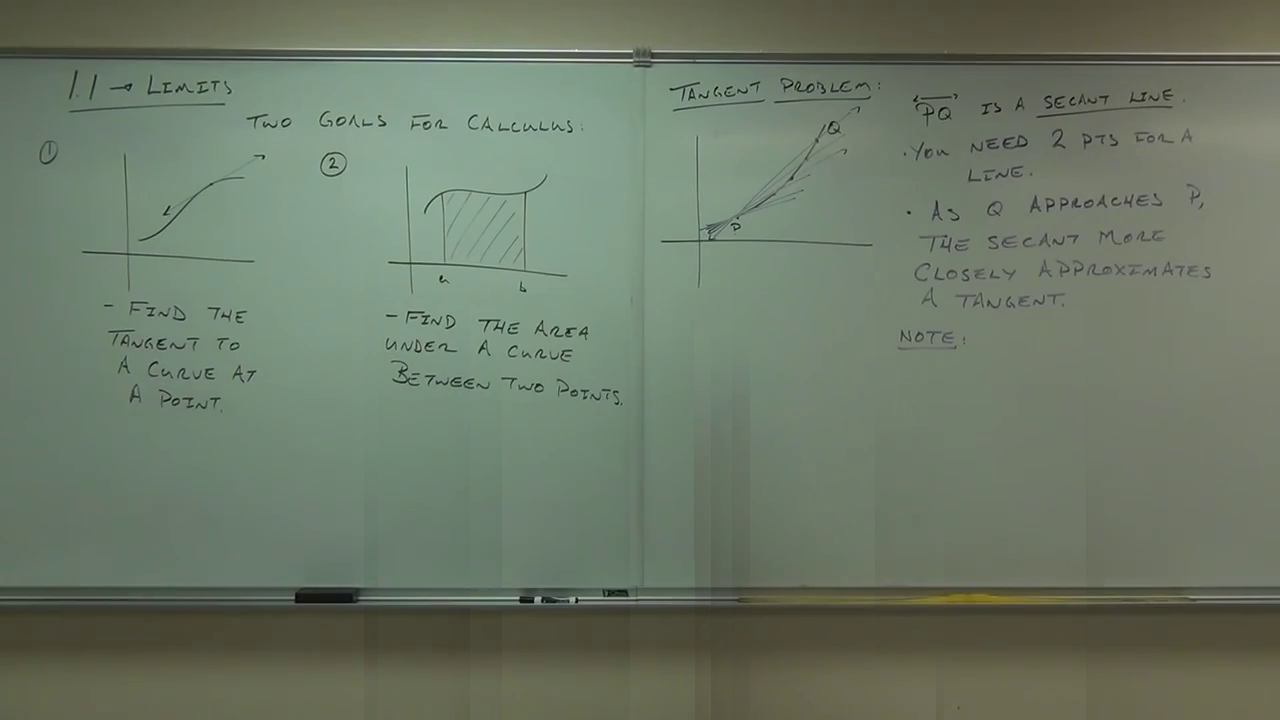 1.1 → LIMITS
TWO GOALS FOR CALCULUS:
①
②
a
b
- FIND THE
TANGENT TO
A CURVE AT
A POINT.
- FIND THE AREA
UNDER A CURVE
BETWEEN TWO POINTS.
TANGENT PROBLEM:
Q
P
PQ IS A SECANT LINE.
• YOU NEED 2 PTS FOR A
LINE.
• AS Q APPROACHES P,
THE SECANT MORE
CLOSELY APPROXIMATES
A TANGENT.
NOTE: